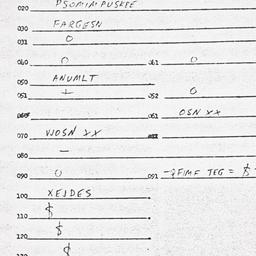 020 PSOMIMPUSKPE
030 FARGESN
031 O
040 O 041 O
050 ANUMLT
051 + 052 O
061 OSN XX
070 VJOSN XX
080 –
090 O 091 -9FIMF TEG = $
100 XEJDES
110 $
120 $
$